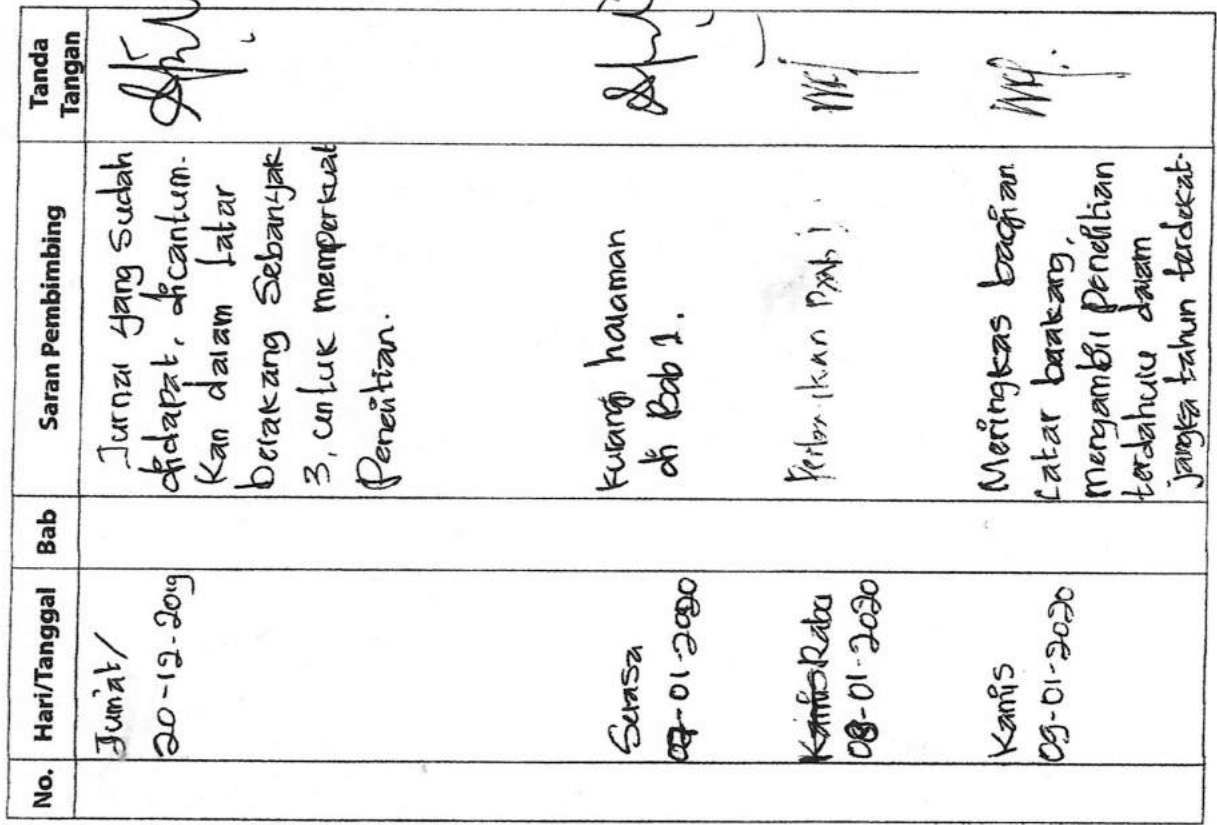 No. Hari/Tanggal Bab Saran Pembimbing Tanda Tangan
Jum'at/
20-12-2019
Jurnal yang sudah
didapat, dicantum-
kan dalam Latar
belakang Sebanyak
3, untuk memperkuat
Penelitian.
Selasa
07-01-2020
kurangi halaman
di Bab 1.
Kamis Rabu
08-01-2020
Kamis
09-01-2020
Meringkas bagian
Latar baakang,
mengambil penelitian
terdahulu dalam
jangka tahun terdekat.